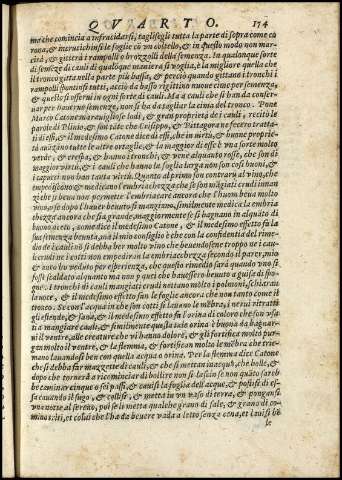 QVARTO. 154
ma che comincia a infracidarsi, taglisegli tutta la parte di sopra come co
rona, & intrutichinsi le foglie cõ un coltello, & in questo modo non mar
cirà, & gitterà i rampolli o brozzoli della semenza. In qualonque sorte
di semẽza di cauli di qualõque maniera si uoglia, è la migliore quella che
il tronco gitta nella parte piu bassa, & perciò quando gittano i tronchi i
rampolli spuntinsi tutti, acciò da basso rigittino nuoue cime per semenza,
& quello si osserui in ogni sorte di cauli. Ma a cauli che si han da conser-
uar per hauerne semenze, non si ha da tagliar la cima del tronco. Pone
Marco Catone marauigliose lodi, & gran proprietà de i cauli, recitò le
parole di Plinio, & son tate che Crisippo, & Pittagora ne fecero tratta-
ti di essi, & il medesimo Catone dice di essi, che in uirtù, & buone proprie-
tà auãzano tutte le altre ortaglie, & la maggior di esse è una sorte molto
verde, & crespa, & hanno i tronchi, & uene alquanto rosse, che son di
maggior uirtù, & i cauli che hanno la foglia larga non son così buoni, &
i capucci non han tanta virtù. Quanto al primo son contrarij al vino, che
impediscono & medicano l'embriachezza che se son mãgiati crudi innan
zi che si beua non permette l'embriacare ancora che l'huom beua molto
uino, & se dopo l'hauer beiuto si mangiano, similmente medica la embria
chezza ancora che sia grande, maggiormente se si bagnano in alquãto di
buono aceto, come dice il medesimo Catone, & il medesimo effetto fa la
sua semenza beuuta, ma il mio consiglio è che con la confidentia del rime-
dio de i cauli nõ si debba ber molto vino che beuendosene troppo ne i cau-
li crudi ne i cotti non impediran la embriacchezza secondo il parer, mio
& auto ho veduto per isperienza, che questo rimedio sarà quando vno si
fosse scaldato alquanto ma non p quei che hauessero beuuto a guisa di spo
gne. I tronchi di cauli mangiati crudi nettano molto i polmoni, schiarano
la uoce, & il medesimo effetto fan le foglie ancora che non tanto come il
tronco. Se con l'acqua in che son cotti se lauano le mẽbra, i nerui ritratti
gli estẽde, & sana, & il medesimo effetto fa l'orina di coloro che son vsa-
ti a mangiare cauli, & similmente questa tale orina è buona da bagnar-
ui il ventre, alle creature che vi hanno dolore, & gli fortifica molto pur
ga molto il ventre, & la flemma, & gli fortifican molto le mẽbra che trie-
uano lauandosi ben con quella acqua o orina. Per la flemma dice Catone
che si debba far mazzette di cauli, & che si mettan in acqua, che bolle, &
dopo che tornerà a ricominciar di bollire non si lascin se non quãto sarebbe
be caminar cinque o sei passi, & cauisi la foglia dell'acqua, & postisi di es-
si cauando il sugo, & collisi, & metta in vn vaso di terra, & pongansi
vna notte al sereno, poi se le metta qualche grano di sale, & grano di co-
mino triti, et colui che l'ha da beuere vada a letto senza cena, et lauisi be
le